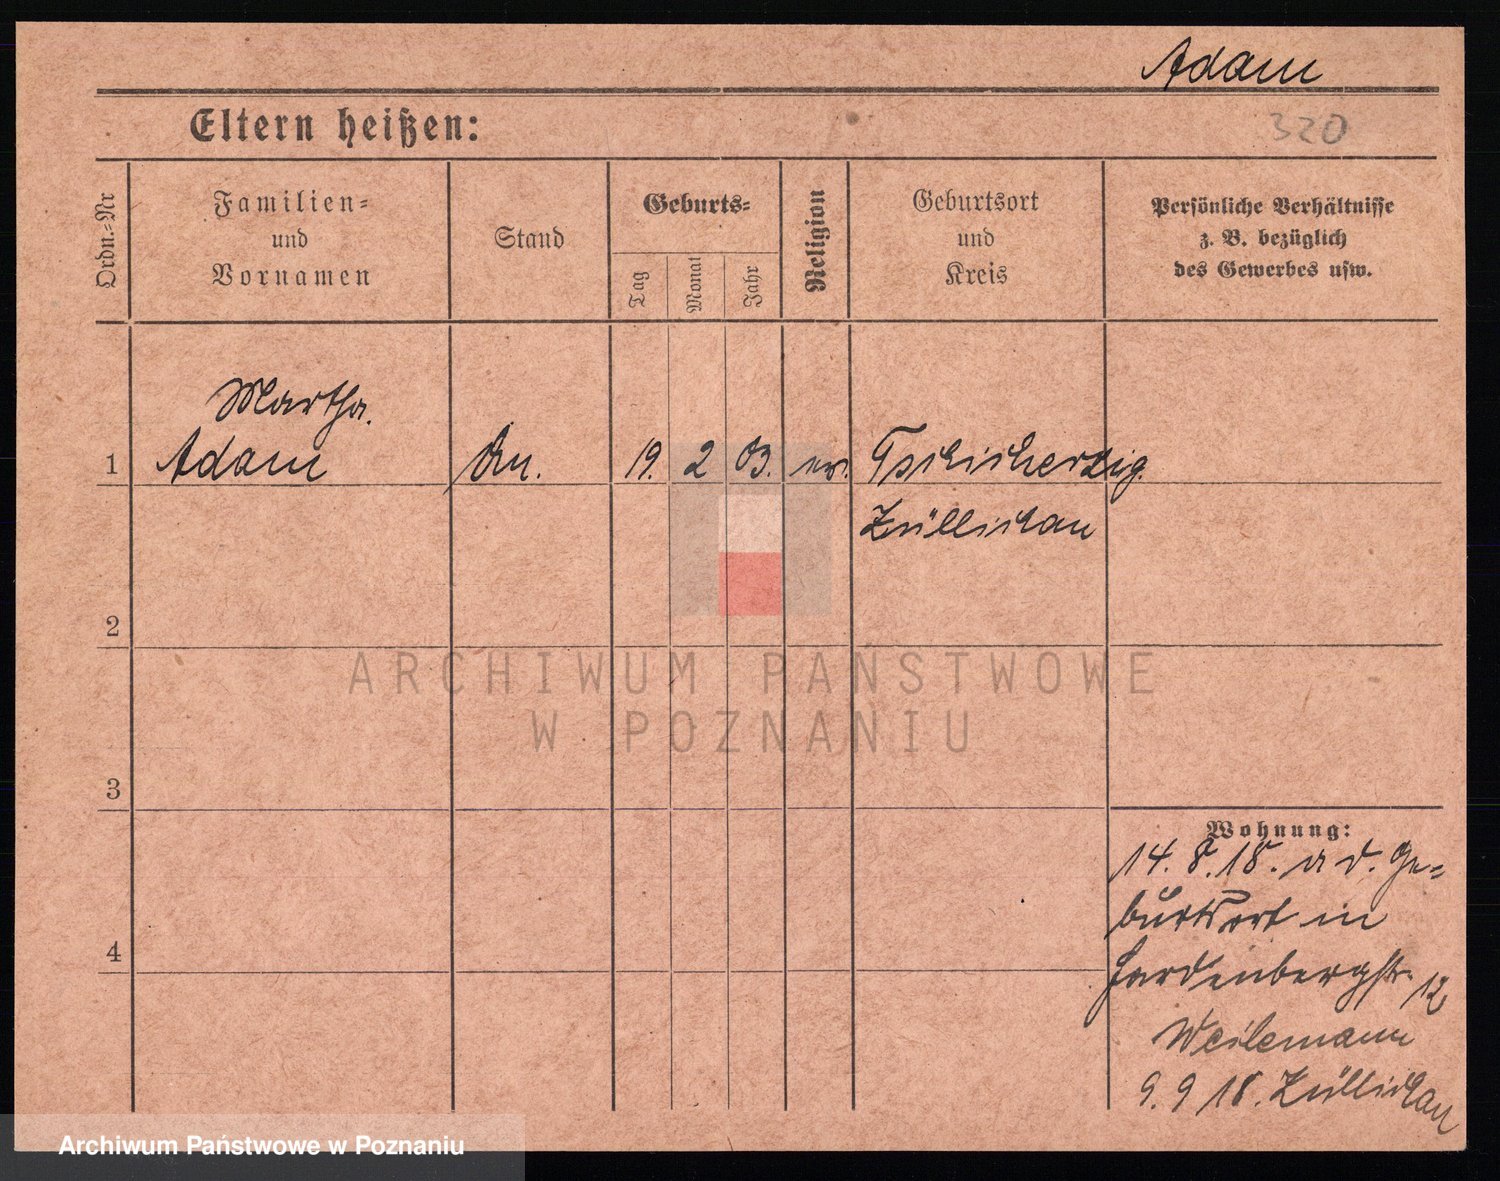 Adam
Eltern heißen:
320
Ordn.-Nr
Familien-
und
Vornamen
Stand
Geburts-
Tag
Monat
Jahr
Religion
Geburtsort
und
Kreis
Persönliche Verhältnisse
z. B. bezüglich
des Gewerbes usw.
Martha.
1 Adam 19. 2 03. ev. Tschicherzig.
Züllichau
2
3
4
Wohnung:
14. 8. 18. a d. Ge-
burtsort in
Hardenbergstr. 12
Weilemann
9. 9 18. Züllichau
ARCHIWUM PAŃSTWOWE
W POZNANIU
Archiwum Państwowe w Poznaniu